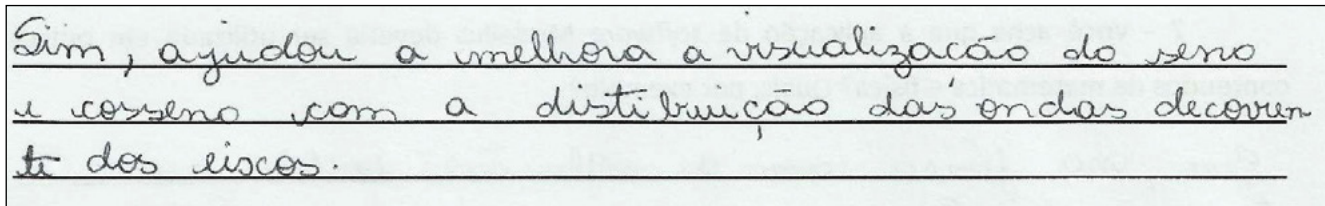 Sim, ajudou a melhora a visualização do seno
e cosseno com a distibuição das ondas decorren
te dos eiscos.